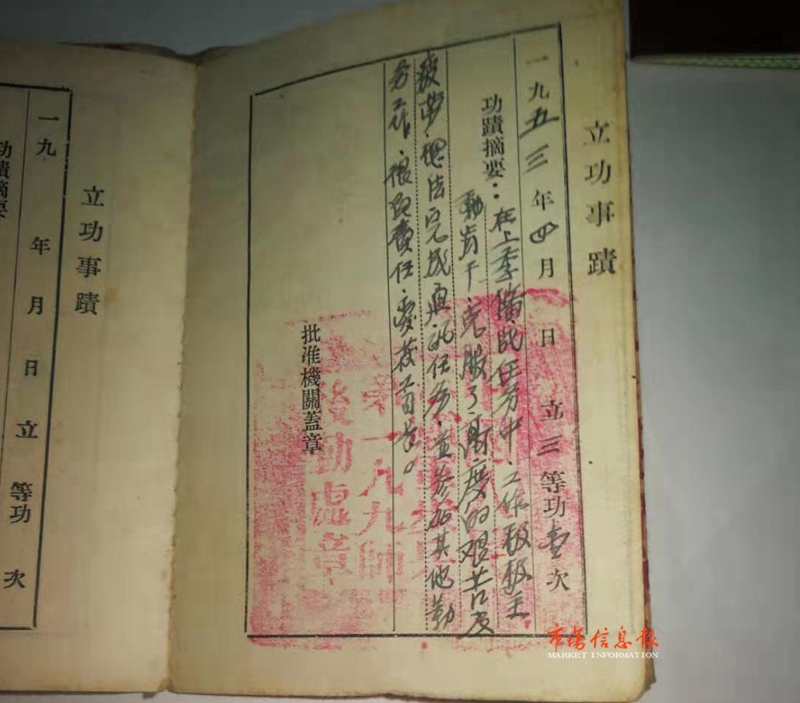 立功事蹟
一九五三年四月 日 立三等功壹次
功蹟摘要：在上季备战任务中．工作极积主
动肯干．克服了高度的艰苦及
疲劳．想法完成了任务．并参加其他勤
务工作．很负责任．爱护首长。
批准機關蓋章
第一九九師
後勤處章
立功事蹟
一九 年 月 日 立 等功 次
功蹟摘要
市場信息报
MARKET INFORMATION